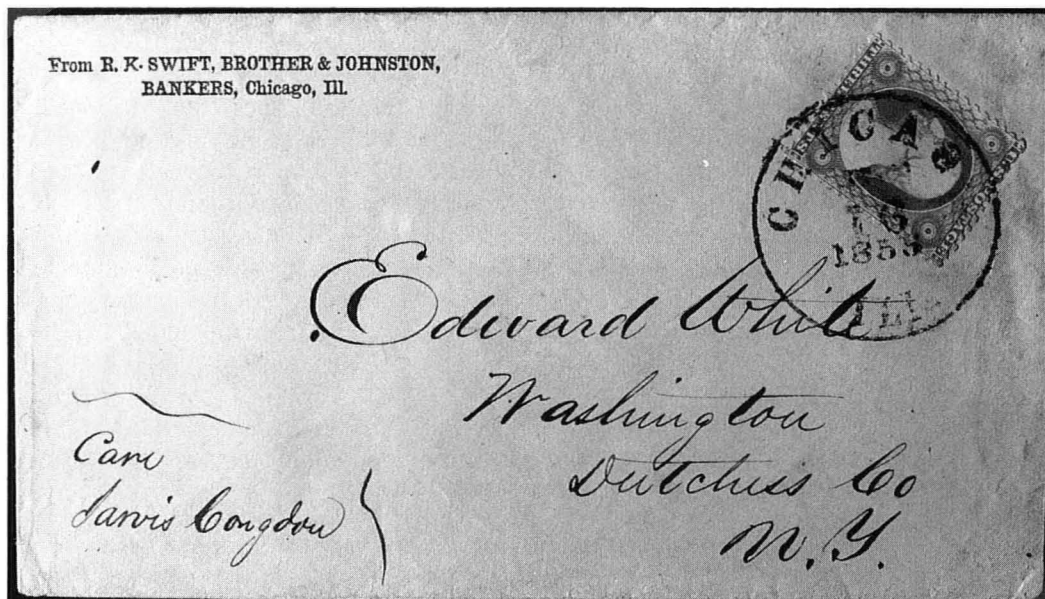 From R. K. SWIFT, BROTHER & JOHNSTON,
BANKERS, Chicago, Ill.
CHICAGO
1855
ILL
Edward White
Washington
Dutchess Co
N.Y.
Care
Jarvis Congdon